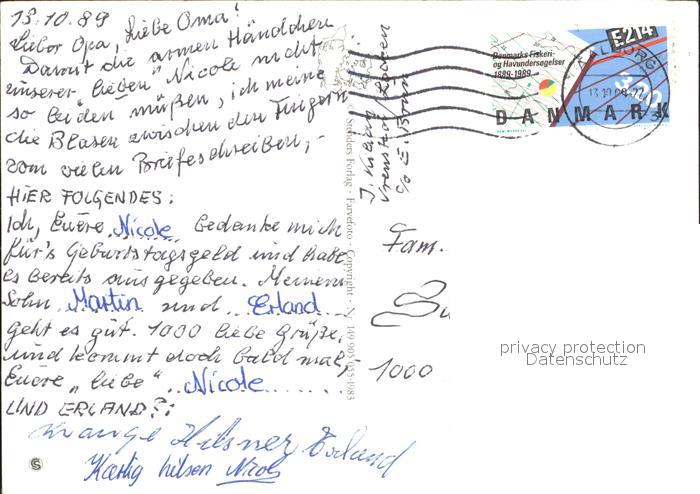 13.10.89
Lieber Opa, liebe Oma!
Damit die armen Händchen
unserer "lieben" Nicole nicht
so leiden müßen, ich meine
die Blasen zwischen den Fingern
vom vielen Briefeschreiben,-
HIER FOLGENDES:
Ich, Euere Nicole bedanke mich
für's Geburtstagsgeld und habe
es bereits ausgegeben. Meinem
Sohn Martin und Erland
geht es gut. 1000 liebe Grüße,
und kommt doch bald mal,
Euere "liebe" Nicole
UND ERLAND?:
Mange Hilsner Erland
Kærlig hilsen Nicole
Stenders Forlag - Farvefoto - Copyright - Nr.
c/o E. Bruun
Danmarks Fiskeri-
og Havundersøgelser
1889-1989
E214
DANMARK
AALBORG
13.10.89
Fam.
1000
privacy protection
Datenschutz
S